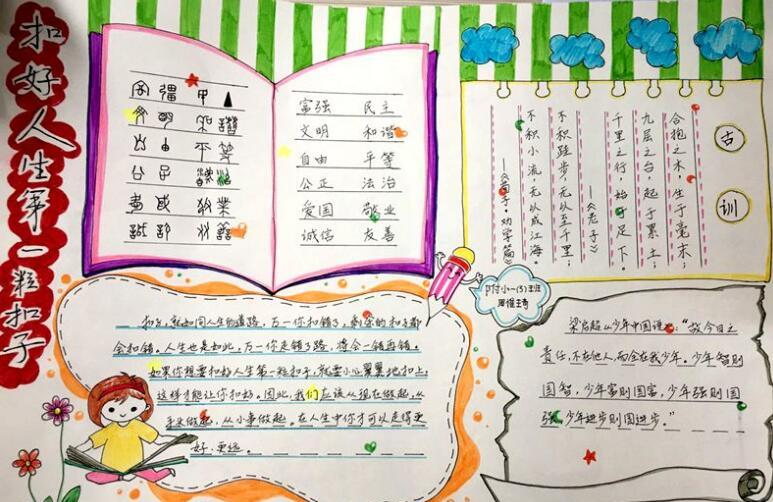 扣好人生第一粒扣子
富强 民主
文明 和谐
自由 平等
公正 法治
爱国 敬业
诚信 友善
古训
合抱之木,生于毫末;
九层之台,起于累土;
千里之行,始于足下。
——《老子》
不积跬步,无以至千里;
不积小流,无以成江海。
——《荀子·劝学篇》
附小一(5)班
扣子,就如同人生的道路,万一你扣错了,剩余的扣子都
会扣错。人生也是如此,万一你走错了路,将会一错再错。
如果你想要扣好人生第一粒扣子,就要小心翼翼地扣上,
这样才能让你扣好。因此,我们应该从现在做起,从
手来做起,从小事做起。在人生中你才可以走得更
好、更远。
梁启超《少年中国说》:“故今日之
责任,不在他人,而全在我少年。少年智则
国智,少年富则国富,少年强则国
强,少年进步则国进步。”